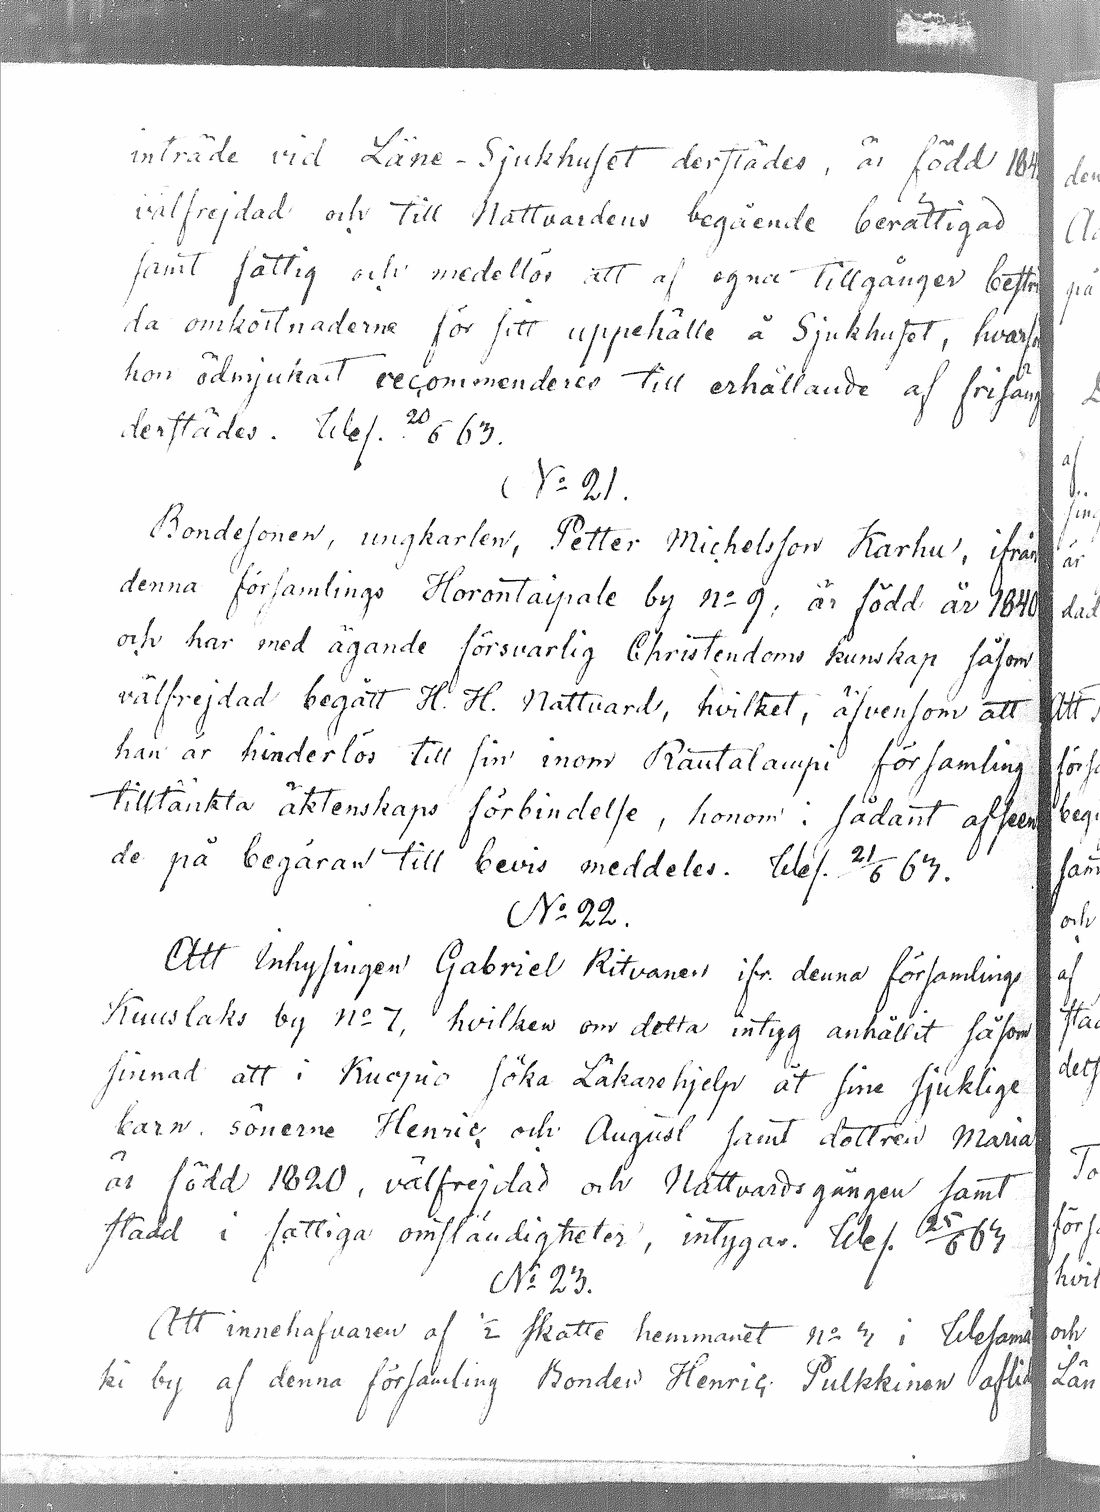 inträde vid Läne-Sjukhuset derstädes, är född 184
välfrejdad och till Nattvardens begående berättigad
samt fattig och medellös att af egna tillgångar bestri
da omkostnaderne för sitt uppehälle å Sjukhuset, hvarfö
hon ödmjukast recommenderes till erhållande af frisäng
derstädes. Wes. 20/6 63.
No 21.
Bondesonen, ungkarlen, Petter Michelsson Karhu, ifrån
denna församlings Horontaipale by no 9, är född år 1840
och har med ägande försvarlig Christendoms kunskap såsom
välfrejdad begått H. H. Nattvard, hvilket, äfvensom att
han är hinderlös till sin inom Rautalampi församling
tilltänkta äktenskaps förbindelse, honom i sådant afseen
de på begäran till bevis meddeles. Wes. 21/6 63.
No 22.
Att Inhysingen Gabriel Ritvanen ifr. denna församlings
Kuuslaks by no 7, hvilken om detta intyg anhållit såsom
sinnad att i Kuopio söka Läkarehjelp åt sine sjuklige
barn, sönerne Henric och August samt dottren Maria
är född 1820, välfrejdad och Nattvardsgången samt
stadd i fattiga omständigheter, intygas. Wes. 25/6 63
No 23.
Att innehafvaren af 1/2 skatte hemmanet no 3 i Wesamä
ki by af denna församling Bonden Henric Pulkkinen aflid
den
på
af
är
Att
förs
begå
sam
och
af
stad
dets
To
förs
hvil
och
Län